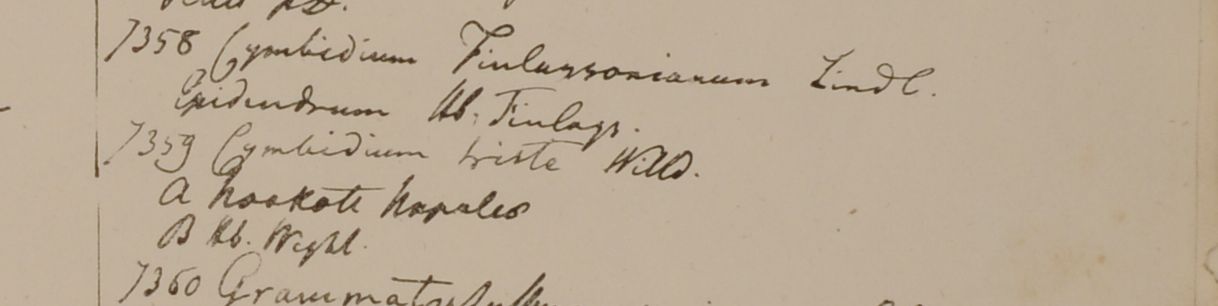 7358 Cymbidium Finlaysonianum Lindl.
Epidendrum Hb. Finlays.
7359 Cymbidium triste Willd.
A Noakote Napalea
B Hb. Wight.
7360 Grammatophyllum